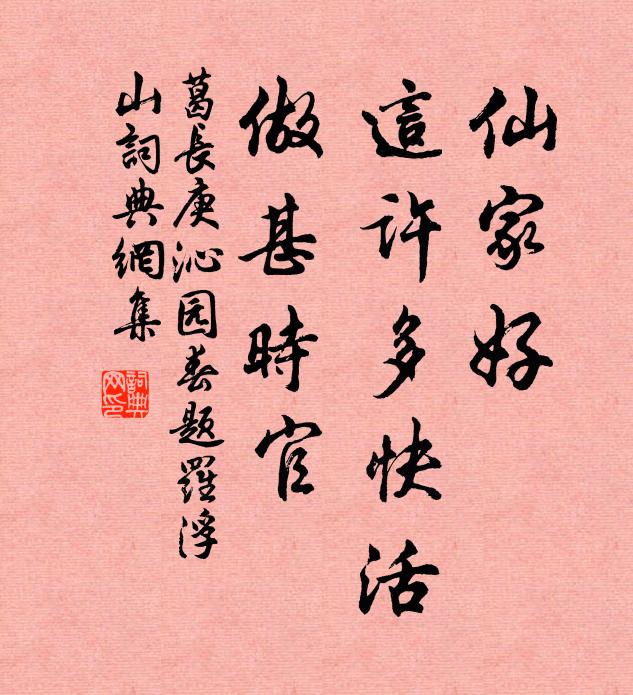 仙家好
這許多快活
做甚時官
葛長庚沁园春题羅浮
山詞典網集
詞典
网印